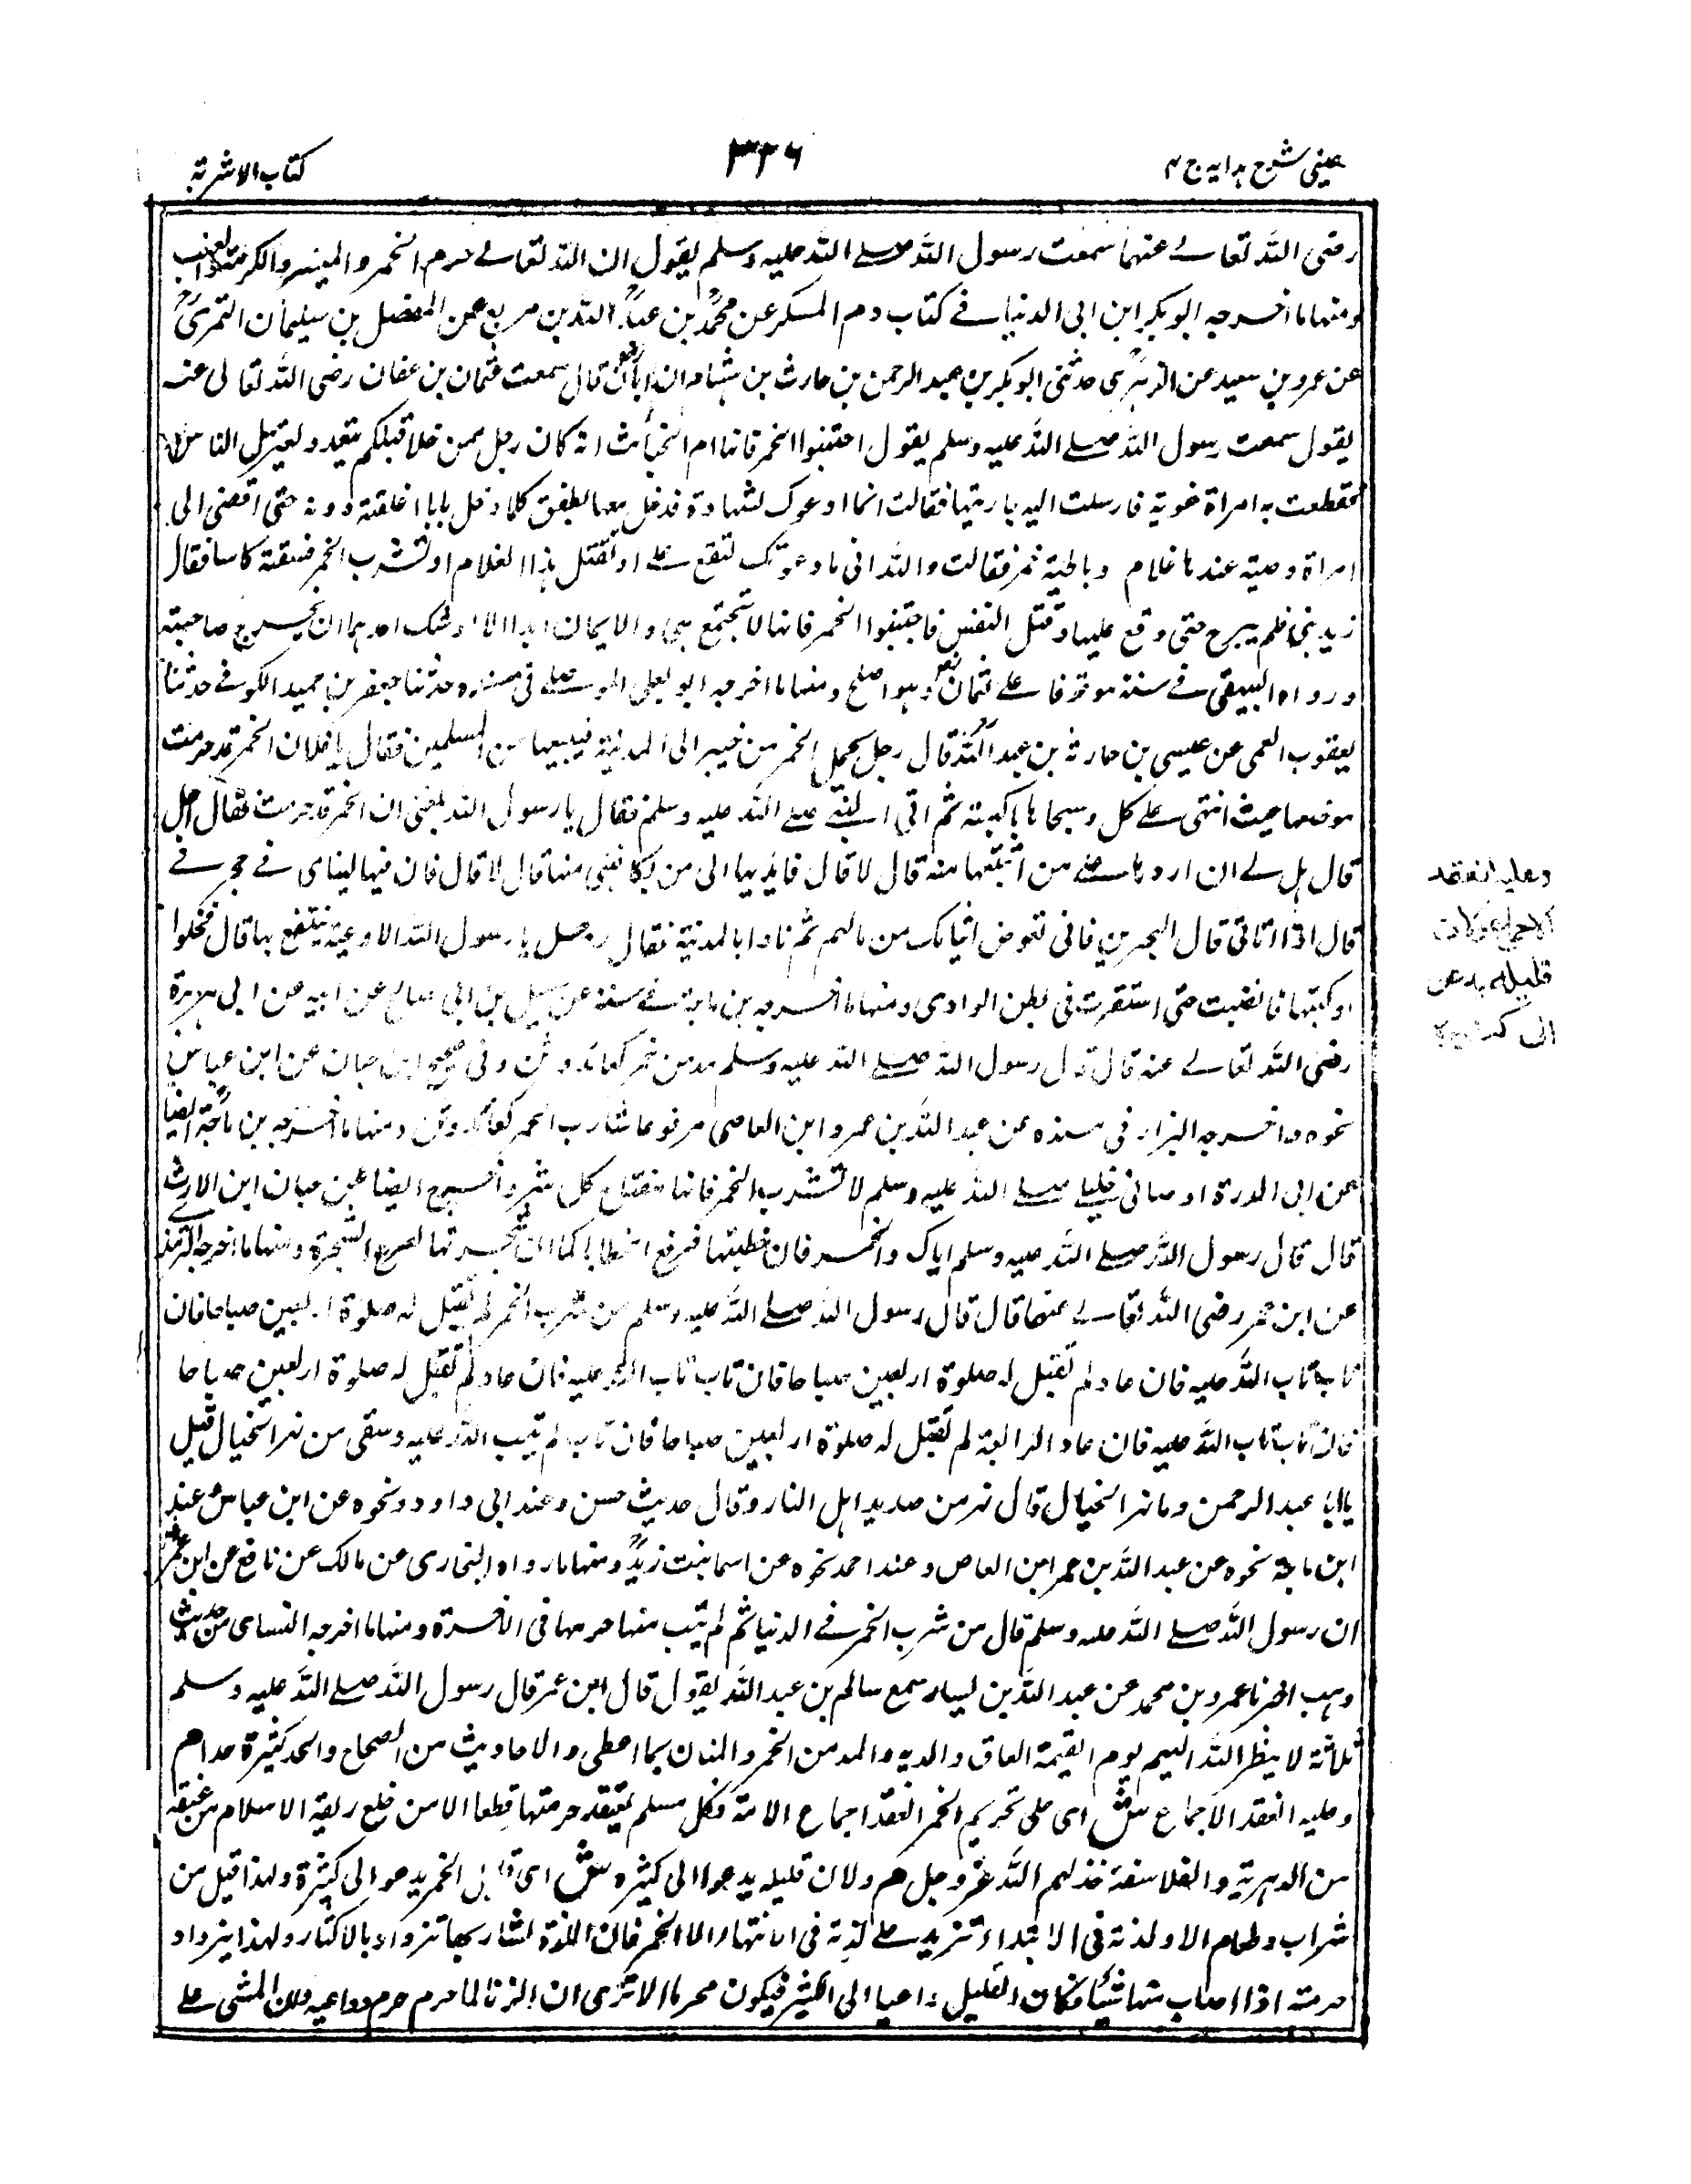 عینی شرح ہدایہ ج ۴
۳۳۶
کتاب الاشربۃ
رضی اللہ تعالے عنہما سمعت رسول اللہ صلے اللہ علیہ وسلم یقول ان اللہ تعالے حرم الخمر والمیسر والکوبۃ
ومنہا ما اخرجہ ابو بکر ابن ابی الدنیا فے کتاب ذم المسکر عن محمد بن عبد اللہ بن بزیع عن الفضل بن سلیمان النمیری
عن عمرو بن سعید عن الزہری حدثنی ابو بکر بن عبد الرحمن بن حارث بن ہشام ان اباہ قال سمعت عثمان بن عفان رضی اللہ تعالی عنہ
یقول سمعت رسول اللہ صلے اللہ علیہ وسلم یقول اجتنبوا الخمر فانہا ام الخبائث انہ کان رجل ممن خلا قبلکم یتعبد ویعتزل الناس
فعلقت بہ امراۃ غویۃ فارسلت الیہ جاریتہا فقالت انما ادعوک لشہادۃ فدخل معہا فطفق کلما دخل بابا اغلقتہ دونہ حتی افضی الی
امراۃ وضیئۃ عندہا غلام وباطیۃ خمر فقالت واللہ انی ما دعوتک لتقع علے او تقتل ہذا الغلام او تشرب الخمر فسقتہ کاسا فقال
زیدینی فلم یبرح حتی وقع علیہا وقتل النفس فاجتنبوا الخمر فانہا لا تجتمع ہی والایمان ابدا الا اوشک احدہما ان یخرج صاحبتہ
ورواہ البیہقی فے سننہ موقوفا علے عثمان وہو اصح ومنہا ما اخرجہ ابو یعلی الموصلے فی مسندہ حدثنا جعفر بن حمید الکوفے حدثنا
یعقوب العمی عن عیسی بن حارثۃ بن عبد اللہ قال رجل یحمل الخمر من خیبر الی المدینۃ فیبیعہا من المسلمین فقال یا فلان الخمر قد حرمت
فوضعہا حیث انتہی علے کل وسجاہا باکیتہ ثم اتی النبے صلے اللہ علیہ وسلم فقال یا رسول اللہ بلغنی ان الخمر قد حرمت فقال اجل
قال ہل لے ان اردہا علے من ابتعتہا منہ قال لا قال فاہدیہا الی من یکافینی منہا قال لا قال فان فیہا لیتامی فے حجرے
قال اذا اتانا قال البحرین فانی نعوض ایتامک من مالہم ثم نادا بالمدینۃ فقال رجل یا رسول اللہ الاوعیۃ ینتفع بہا قال فحلوا
اوکیتہا فانصبت حتی استقرت فی بطن الوادی ومنہا ما اخرجہ بن ماجۃ فے سننہ عن سہیل بن ابی صالح عن ابیہ عن ابی ہریرۃ
رضی اللہ تعالے عنہ قال قال رسول اللہ صلے اللہ علیہ وسلم مدمن خمر کعابد وثن وفی صحیح ابن حبان عن ابن عباس
نحوہ واخرجہ البزار فی مسندہ عن عبد اللہ بن عمرو ابن العاصی مرفوعا شارب الخمر کعابد وثن ومنہا ما اخرجہ بن ماجۃ ایضا
عن ابی الدردۃ اوصانی خلیلی صلے اللہ علیہ وسلم لا تشرب الخمر فانہا مفتاح کل شر واخرج ایضا عن حبان ابن الارث
قال قال رسول اللہ صلے اللہ علیہ وسلم ایاک والخمر فان خطیئتہا تفرع الخطایا کما ان شجرتہا تفرع الشجرۃ ومنہا ما اخرجہ الترمذے
عن ابن عمر رضی اللہ تعالے عنہما قال قال رسول اللہ صلے اللہ علیہ وسلم من شرب الخمر لم تقبل لہ صلوۃ اربعین صباحا فان
تاب تاب اللہ علیہ فان عاد لم تقبل لہ صلوۃ اربعین صباحا فان تاب تاب اللہ علیہ فان عاد لم تقبل لہ صلوۃ اربعین صباحا
فان تاب تاب اللہ علیہ فان عاد الرابعۃ لم تقبل لہ صلوۃ اربعین صباحا فان تاب لم یتب اللہ علیہ وسقی من نہر الخیال قیل
یا ابا عبد الرحمن وما نہر الخیال قال نہر من صدید اہل النار وقال حدیث حسن وعند ابی داود ونحوہ عن ابن عباس وعند
ابن ماجۃ نحوہ عن عبد اللہ بن عمر ابن العاص وعند احمد نحوہ عن اسما بنت زید ومنہا ما رواہ البخاری عن مالک عن نافع عن ابن عمر
ان رسول اللہ صلے اللہ علیہ وسلم قال من شرب الخمر فے الدنیا ثم لم یتب منہا حرمہا فی الاخرۃ ومنہا ما اخرجہ النسای من حدیث
وہب اخبرنا عمرو بن محمد عن عبد اللہ بن یسار سمع سالم بن عبد اللہ یقول قال ابن عمر قال رسول اللہ صلے اللہ علیہ وسلم
ثلاثۃ لا ینظر اللہ الیہم یوم القیمۃ العاق والدیہ والمدمن الخمر والمنان بما اعطی والاحادیث من الصحاح والحد کثیرۃ جدا ھم
وعلیہ انعقد الاجماع ش ای علی تحریم الخمر انعقد اجماع الامۃ فکل مسلم یعتقد حرمتہا قطعا الا من خلع ربقۃ الاسلام من عنقہ
من الدہریۃ والفلاسفۃ خذلہم اللہ عز وجل ھم ولان قلیلہ یدعوا الی کثیرہ ش ای قلیل الخمر یدعوا الی کثیرۃ ولہذا قیل من
شراب وطعام الا ولذتہ فی الابتداء تزید علے لذتہ فی الانتہاء الا الخمر فان اللذۃ لشاربہا تزداد بالاکثار ولہذا یزداد
حرمتہ اذا اصاب منہا شیئا فکان القلیل داعیا الی الکثیر فیکون محرما الا تری ان الزنا لما حرم حرم دواعیہ ولان المشی علے
وعلیہ انعقد
الاجماع ولان
قلیلہ یدعو
الی کثیرہ